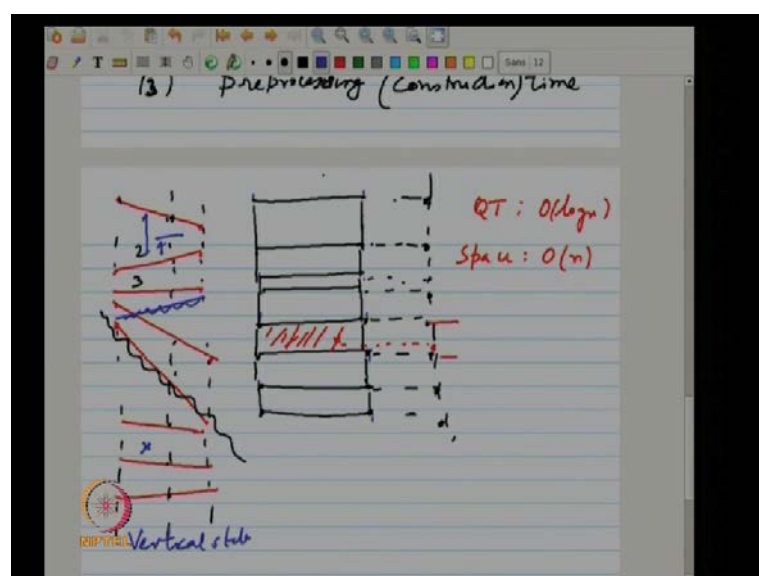 T Sans 12
(3) Preprocessing (Construction) Time
QT : O(logn)
Space : O(n)
2
3
x
NPTEL
Vertical slab